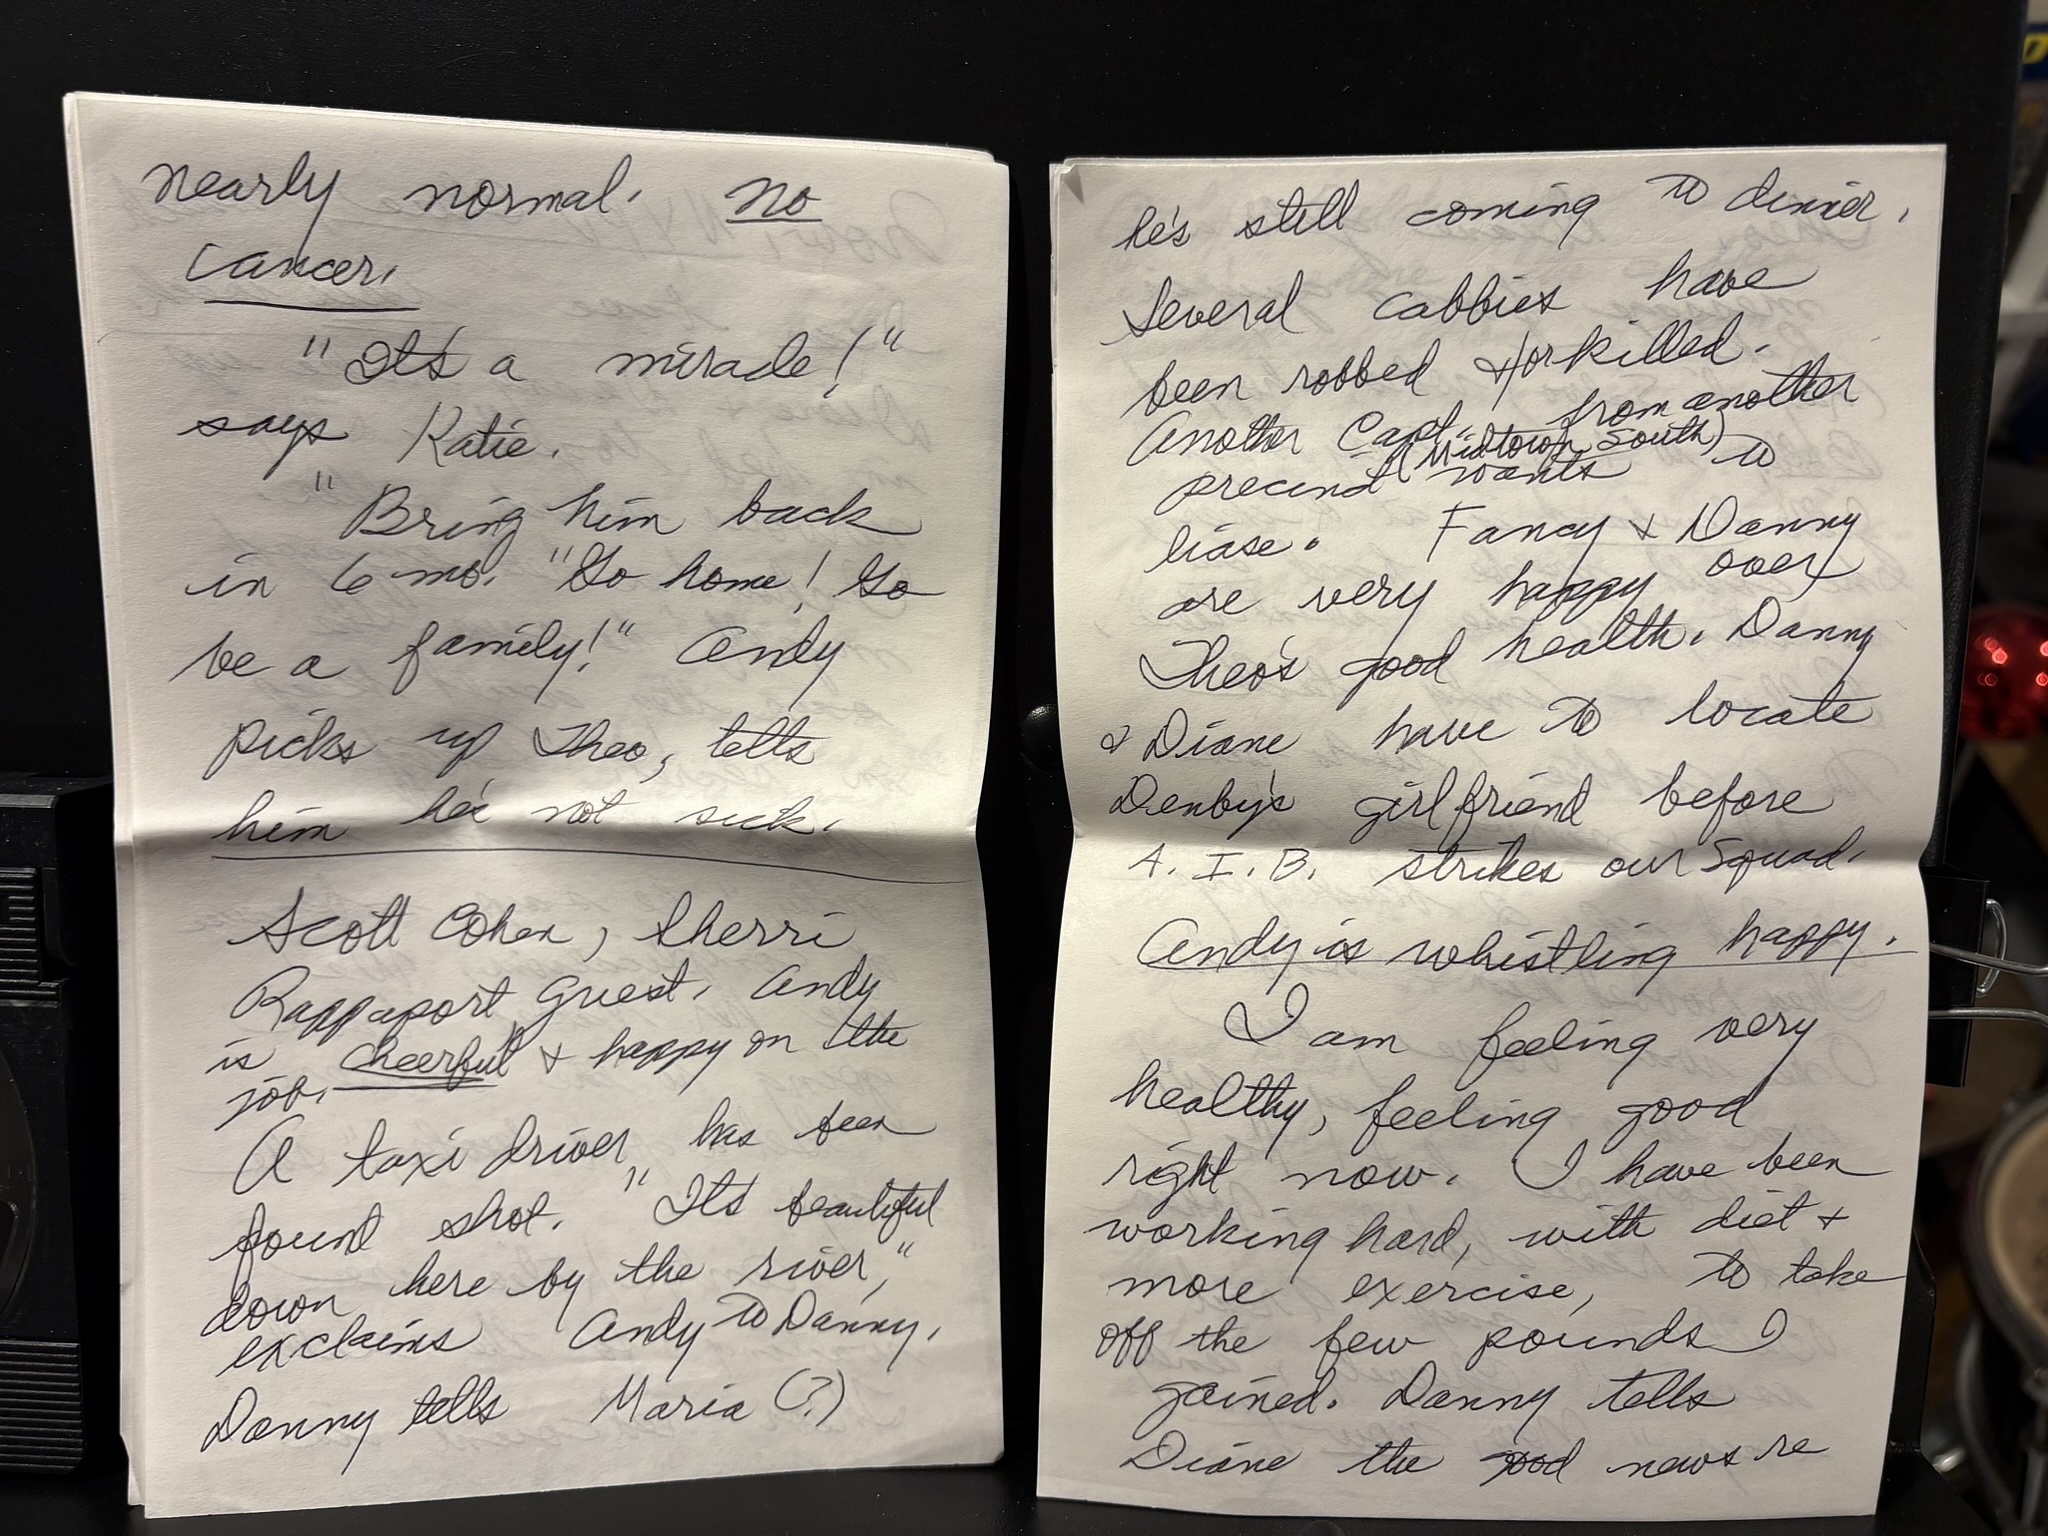 nearly normal. no
cancer.
"It's a miracle!"
says Katie.
"Bring him back
in 6 mo. "Go home! Go
be a family!" Andy
picks up Theo, tells
him he's not sick.
Scott Cohen, Sherri
Rappaport Guest. Andy
is cheerful & happy on the
job.
A taxi driver has been
found shot. "It's beautiful
down here by the river,"
exclaims Andy to Danny.
Danny tells Maria (?)
he's still coming to dinner.
Several cabbies have
been robbed &/or killed.
Another Capt. from another
precinct (Midtown South) wants to
liase. Fancy & Danny
are very happy over
Theo's good health. Danny
& Diane have to locate
Denby's girlfriend before
A. I. B. strikes our Squad.
Andy is whistling happy.
I am feeling very
healthy, feeling good
right now. I have been
working hard, with diet &
more exercise, to take
off the few pounds I
gained. Danny tells
Diane the good news re